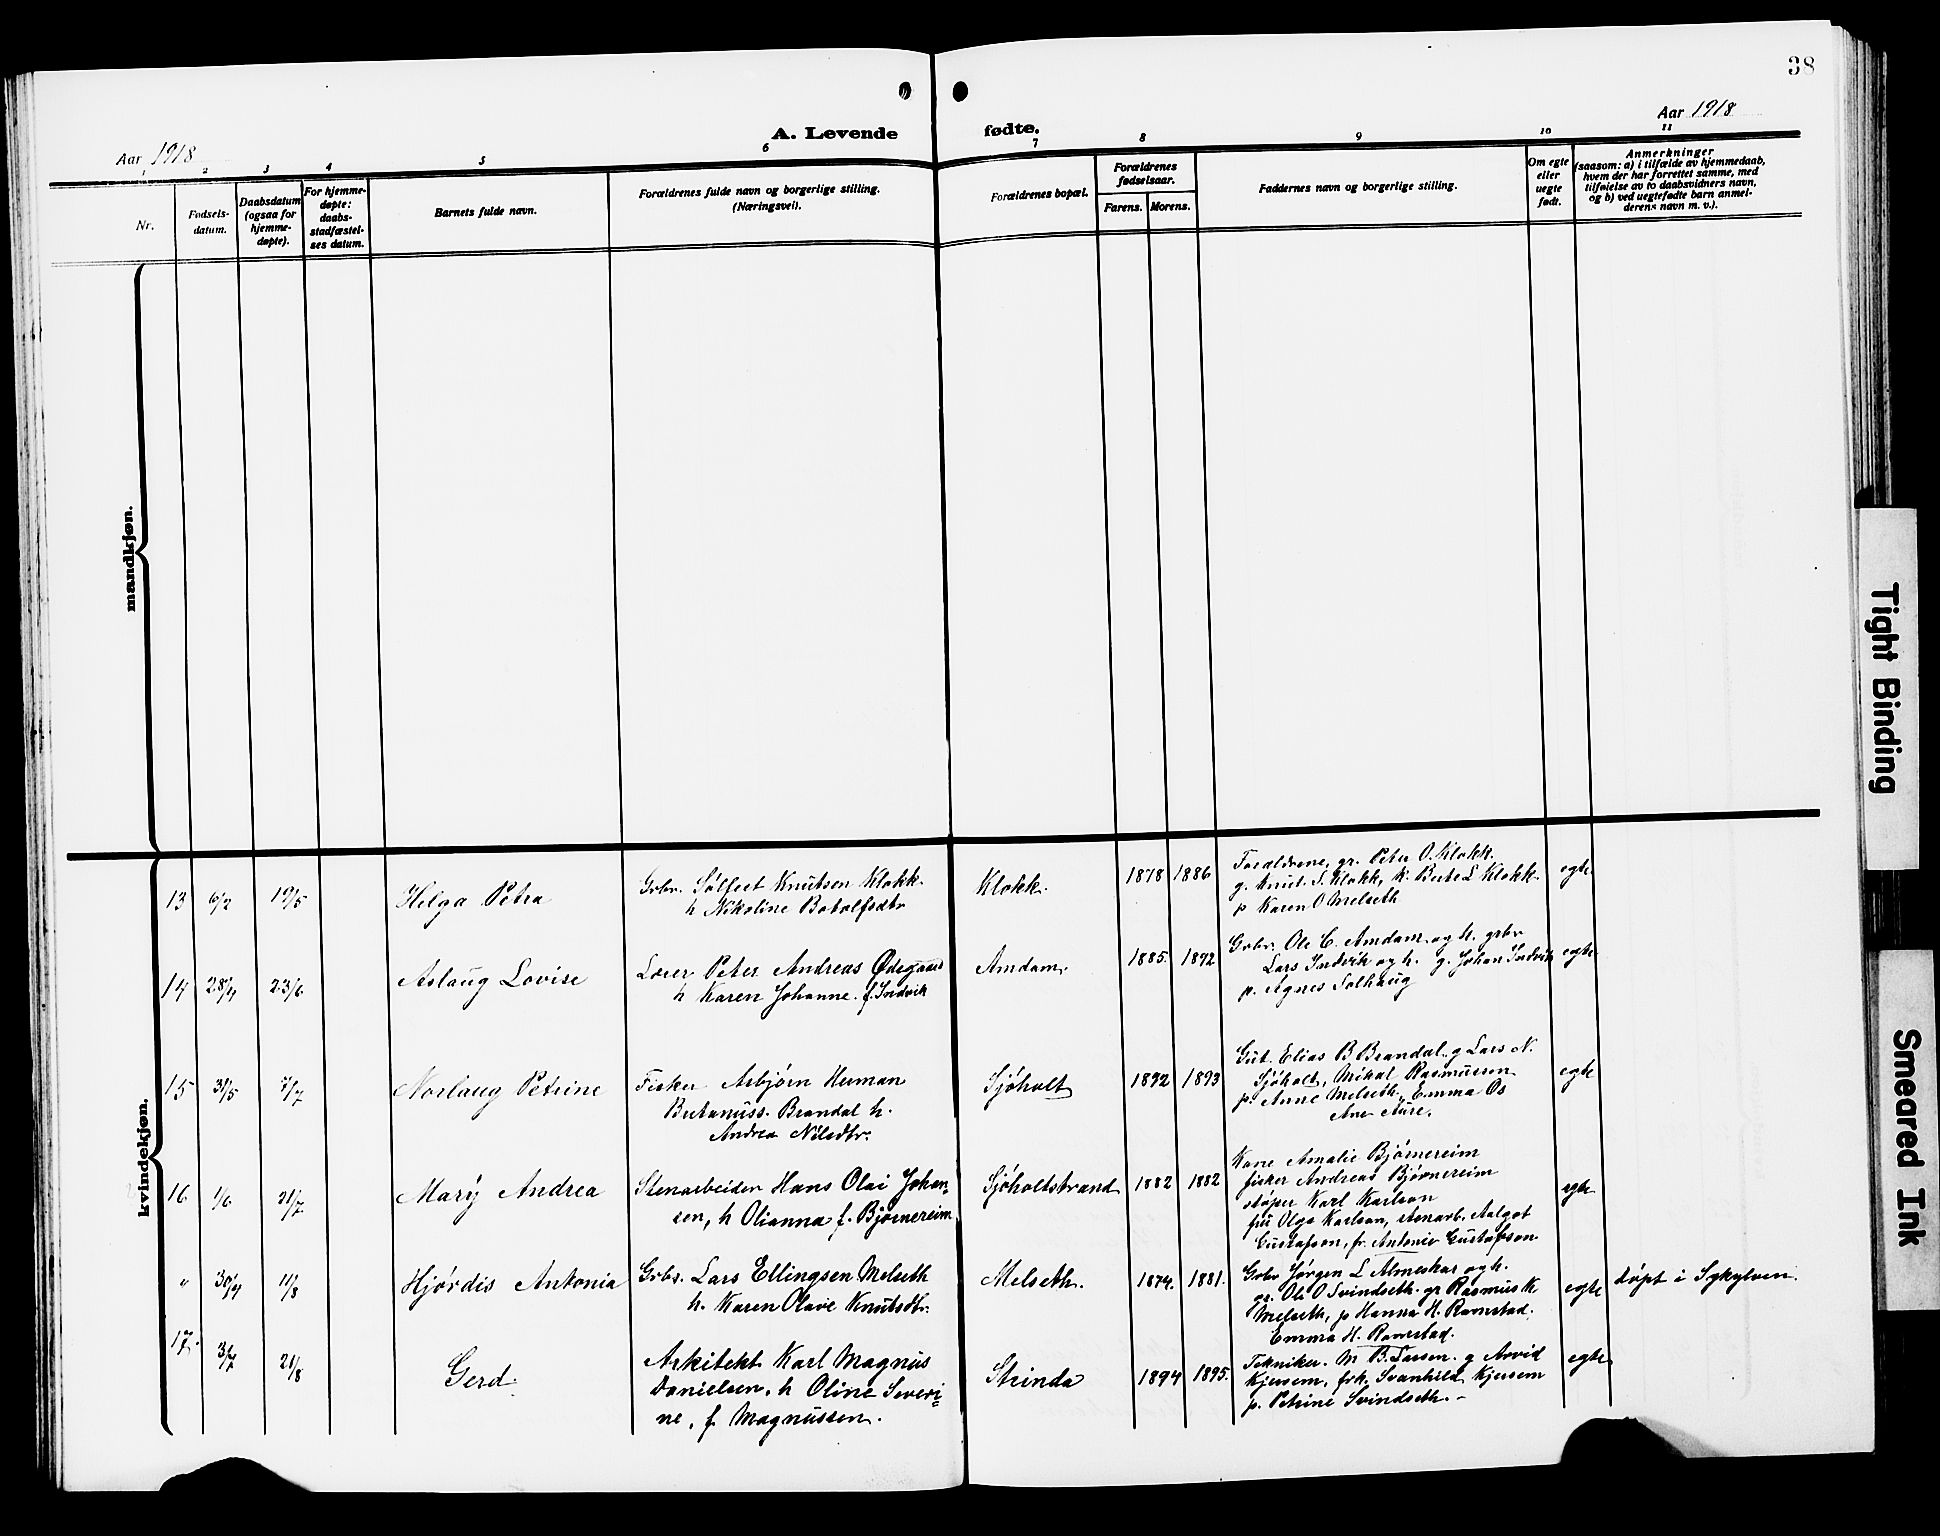 38
Aar 1918
A. Levende fødte.
Aar 1918
1 2 3 4 5 6 7 8 9 10 11
Nr.
Fødsels-
datum.
Daabsdatum
(ogsaa for
hjemme-
døpte).
For hjemme-
døpte:
daabs-
stadfæstel-
ses datum.
Barnets fulde navn.
Forældrenes fulde navn og borgerlige stilling.
(Næringsvei).
Forældrenes bopæl.
Forældrenes
fødselsaar.
Farens. Morens.
Faddernes navn og borgerlige stilling.
Om egte
eller
uegte
født.
Anmerkninger
(saasom: a) i tilfælde av hjemmedaab,
hvem der har forrettet samme, med
tilføielse av to daabsvidners navn,
og b) ved uegtefødte barn anmel-
derens navn m. v.).
mandkjøn.
kvindekjøn.
13 6/2 19/5 Helga Petra
Grbr. Sölfest Knutsen Klokk.
h Nikoline Botolfsdtr
Klokk. 1878 1886
Forældrene, gr. Peter O. Klokk.
g. Knut S. Klokk, k. Berte L Klokk.
p Karen O Melseth
egte
14 28/4 23/6 Aslaug Lovise
Lærer Peter Andreas Ødegaard
h Karen Johanne. f. Indvik
Amdam. 1885. 1892
Grbr. Ole C. Amdam og h. grbr
Lars Indvik og h. g. Johan Indvik
p. Agnes Solhaug
egte
15 31/5 7/7 Norlaug Petrine
Fisker Asbjørn Herman
Brandal h.
Andrea Nilsdtr.
Sjöholt 1892 1893
Gut. Elias B Brandal. g Lars N.
Sjöholt, Mikal Rasmussen
p. Anne Melseth, Emma Os
Ane Aure.
egte
16 1/6 21/7 Marÿ Andrea
Stenarbeider Hans Olai Johan-
sen, h Olianna f. Bjørnereim
Sjöholtstrand 1882 1882
Kone Amalie Bjørnereim
fisker Andreas Bjørnereim
støper Karl Karlson
fru Olga Karlson, stenarb. Aalgot
Gustafson, fr. Antonie Gustafsson
egte
" 30/4 11/8 Hjördis Antonia
Grbr. Lars Ellingsen Melseth
h. Karen Olave Knutsdtr.
Melseth. 1874. 1881.
Grbr Jørgen L Almeskar og h.
gr. Ole O Svindseth. gr Rasmus K
Melseth, p Hanna H. Ramstad.
Emma H. Ramstad.
egte döpt i Sykylven.
17. 3/7 21/8 Gerd.
Arkitekt Karl Magnus
Danielsen, h Oline Severi-
ne, f Magnussen.
Strinda 1894 1895.
Tekniker. M B. Larsen. g Arvid
Kjersem, frk. Svanhild Kjersem
p. Petrine Svindseth. –
egte
Tight Binding
Smeared Ink